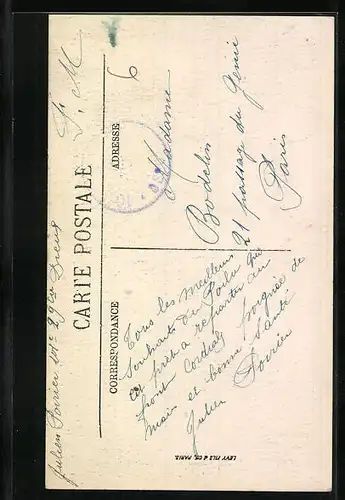 Julien Poirier 101e 29e Cie Dreux
F. M
CARTE POSTALE
CORRESPONDANCE
ADRESSE
6
Tous les meilleurs
souhaits du Poilu qui
est prêt à repartir au
front Cordiale poignée de
main et bonne santé
Julien Poirier
Madame
Bodelin
21 passage du Génie
Paris
LEVY FILS & CIE. PARIS.